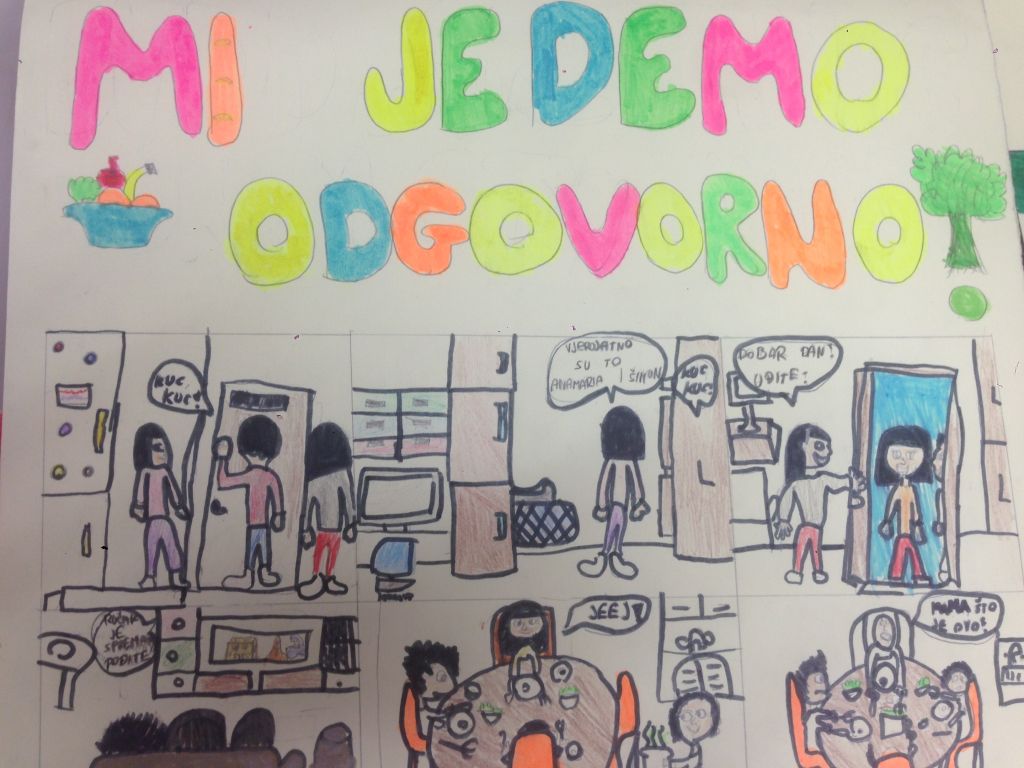 MI JEDEMO
ODGOVORNO!
KUC,
KUC!
VJEROJATNO
SU TO
ANAMARIJA I ŠIMUN
KUC
KUC!
DOBAR DAN!
UĐITE!
RUČAK
JE
SPREMAN
DOĐITE
JEEJ!
MAMA ŠTO
JE OVO?